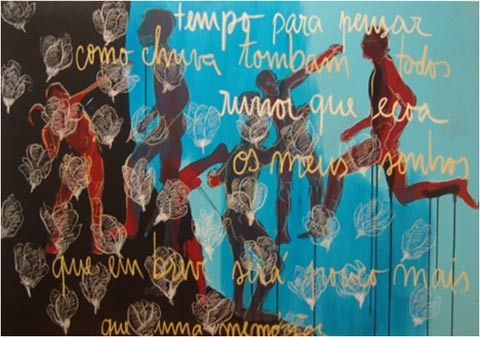 tempo para pensar
como chuva tombam todos
rumor que ecoa
os meus sonhos
que em breve será pouco mais
que uma memória